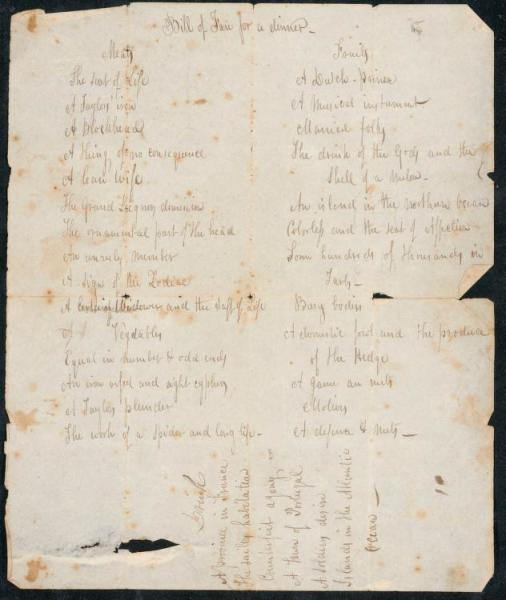 Bill of Fair for a dinner
Meats
The seat of Life
A Taylors iron
A Blockhead
A thing of no consequence
A lean wife
The Grand Signors dominion
The ornamental part of the head
An unruly member
A sign of the Zodiac
A and the Staff of Life
A Vegetables
Equal in number & odd ends
An iron and eight cyphers
A Taylors plunder
The work of a Spider and long life
Fruits
A Dutch prince
A musical instrument
Married folks
The drink of the Gods and the
Shell of a melon
An island in the northern Ocean
Colorless and the seat of Affection
Some hundreds of thousands in
Tarts
Busy bodies
A domestic fowl and the produce
of the Hedge
A game an nuts
Motives
A defence & nuts
A province in France
The habitation
Counterfeit agony
A Town of Portugal
A desire
Islands in the Atlantic
Ocean